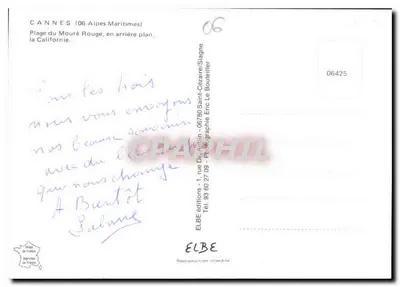 CANNES (06-Alpes Maritimes)
Plage du Mouré Rouge, en arrière plan,
la Californie.
06
06425
Tous les trois
nous vous envoyons
nos beaux souvenirs
avec du
que nous change
A Bientôt
ELBE éditions - 1, rue Du - 06780 Saint-Cézaire/Siagne
Tél. 93 60 27 09 - Photographie Eric Le Bouteiller
CPAPHIL
ELBE
Reproduction interdite